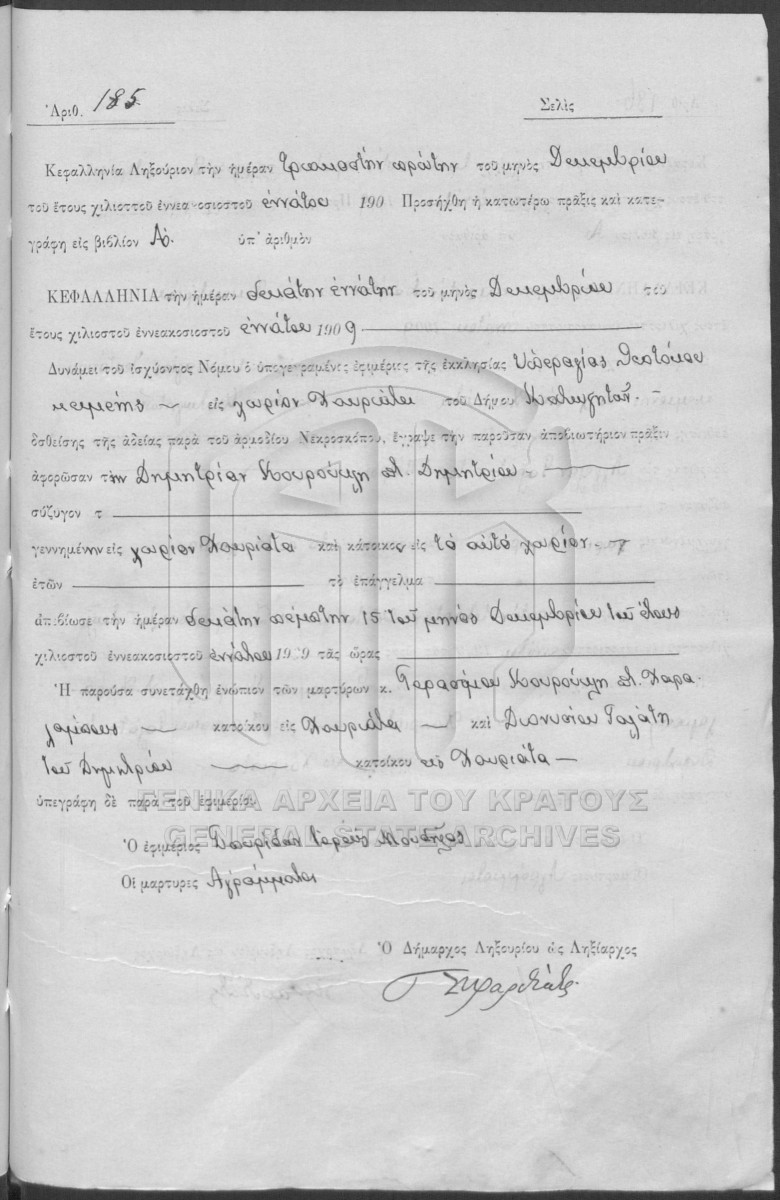 Ἀριθ. 185.
Σελὶς
Κεφαλληνία Ληξούριον τὴν ἡμέραν τριακοστὴν πρώτην τοῦ μηνὸς Δεκεμβρίου
τοῦ ἔτους χιλιοττοῦ ἐννεα οσιοστοῦ ἐννάτου 190 Προσήχθη ἡ κατωτέρω πρᾶξις καὶ κατε-
γράφη εἰς βιβλίον Α. ὑπ' ἀριθμὸν
ΚΕΦΑΛΛΗΝΙΑ τὴν ἡμέραν δεκάτην ἐννάτην τοῦ μηνὸς Δεκεμβρίου του
ἔτους χιλιοστοῦ ἐννεακοσιοστοῦ ἐννάτου 1909
Δυνάμει τοῦ ἰσχύοντος Νόμου ὁ ὑπογεγραμένος ἐφιμέριος τῆς ἐκκλησίας Ὑπεραγίας Θεοτόκου
εἰς χωρίον Χαυριάτα τοῦ Δήμου
δσθείσης τῆς ἀδείας παρὰ τοῦ ἁρμοδίου Νεκροσκόπου, ἔγραψε τὴν παροῦσαν ἀποβιωτήριον πρᾶξιν
ἀφορῶσαν τὸν Δημήτριον Κουρούκλη Δημητρίου
σύζυγον τ
γεννημένην εἰς χωρίον Χαυριάτα καὶ κάτοικον εἰς τὸ αὐτὸ χωρίον.
ἐτῶν τὸ ἐπάγγελμα
ἀπεβίωσε τὴν ἡμέραν δεκάτην πέμπτην 15 τοῦ μηνὸς Δεκεμβρίου τοῦ ἔτους
χιλιοστοῦ ἐννεακοσιοστοῦ ἐννάτου 1909 τὰς ὥρας
Ἡ παροῦσα συνετάχθη ἐνώπιον τῶν μαρτύρων κ. Γερασίμου Κουρούκλη Χαρα-
λάμπους κατοίκου εἰς Χαυριάτα καὶ Διονυσίου Γαλάτη
τοῦ Δημητρίου κατοίκου εἰς Χαυριάτα
ὑπεγράφη δὲ παρὰ τοῦ ἐφιμερίου
ΓΕΝΙΚΑ ΑΡΧΕΙΑ ΤΟΥ ΚΡΑΤΟΥΣ
GENERAL STATE ARCHIVES
Ὁ ἐφιμέριος Σπυρίδων Ἱερεὺς
Οἱ μαρτυρες Ἀγράμματοι
Ὁ Δήμαρχος Ληξουρίου ὡς Ληξίαρχος